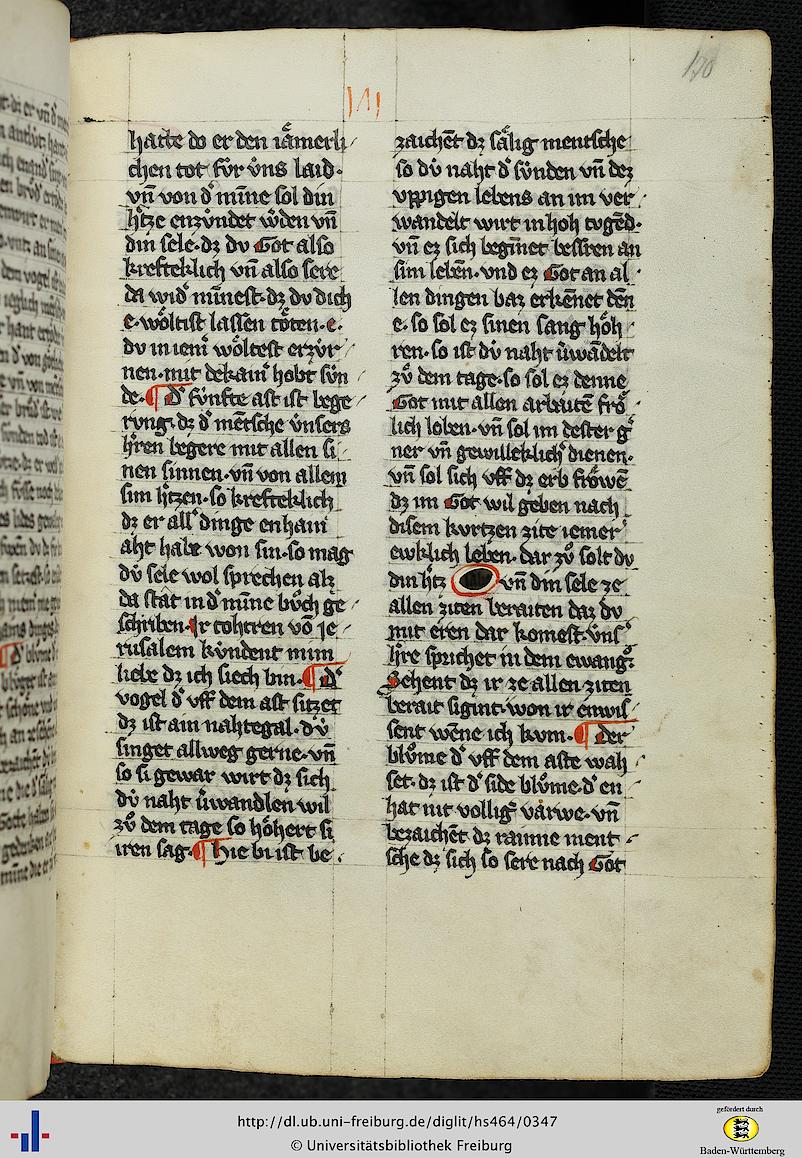 170
hatte do er den iaͤmerli
chen tot fúr v́ns laid·
vn̄ von dˀ mīne sol din
hˀtze enzv́ndet wˀden vn̄
din sele·dz dv Got also
krefteklich vn̄ also sere
da widˀ mīnest·dz dv dich
e·woͤltist lassen toͤten·e·
dv in iemˀ woͤltest erzv́r
nen·mit dekainˀ hobt sún
de·¶ Dˀ fv́nfte ast ist bege
rvng·dz dˀ mēTsche v́nsers
hˀren begere mit allen si
nen sinnen·vn̄ von allem
sim hˀtzen·so krefteklich
dz er allˀ dinge enhain
aht habe won sin·so mag
dv́ sele wol sprechen alz
da stat in dˀ mīne bv̊ch ge
schriben·Ir tohtren vō Je
rusalem kv́ndent minm
liebe dz ich siech bin·¶ Dˀ
vogel dˀ vff dem ast sitzet
dz ist ain nahtegal·dv́
singet allweg gerne·vn̄
so si gewar wirt dz sich
dv́ naht v̄wandlen wil
zv̊ dem tage so hoͤhert si
iren sag·¶ Hie bi ist be
zaichēt dz saͤlig mentsche
so dv́ naht dˀ súnden vn̄ dez
vppigen lebens an im ver
wandelt wirt in hoh tvgēd·
vn̄ ez sich begīnet bessren an
sim lebēn·vnd ez Got an al
len dingen baz erkēnet dēn
e·so sol ez sinen sang hoͤh
ren·so ist dv́ naht v̄wādelt
zv̊ dem tage·so sol ez denne
Got mit allen arbaitē froͤ
lich loben·vn̄ sol im dester gˀ
ner vn̄ gewilleklichˀ dienen·
vn̄ sol sich vff dz erb froͤwē
dz im Got wil geben nach
disem kvrtzen zite iemer
ewklich leben·dar zv̊ solt dv
din hˀtz vn̄ din sele ze
allen ziten beraiten daz dv
mit eren dar komest·v́nsˀ
hˀre sprichet in dem ewangˀ·
Sehent dz ir ze allen ziten
berait sigint·won ir enwis
sent wēne ich kvm·¶ Der
blv̊me dˀ vff dem aste wah
set·dz ist dˀ side blv̊me·dˀ en
hat nit volligˀ varwe·vn̄
bezaichēt dz rainne ment
sche dz sich so sere nach Got
http://dl.ub.uni-freiburg.de/diglit/hs464/0347
© Universitätsbibliothek Freiburg
gefördert durch
Baden-Württemberg